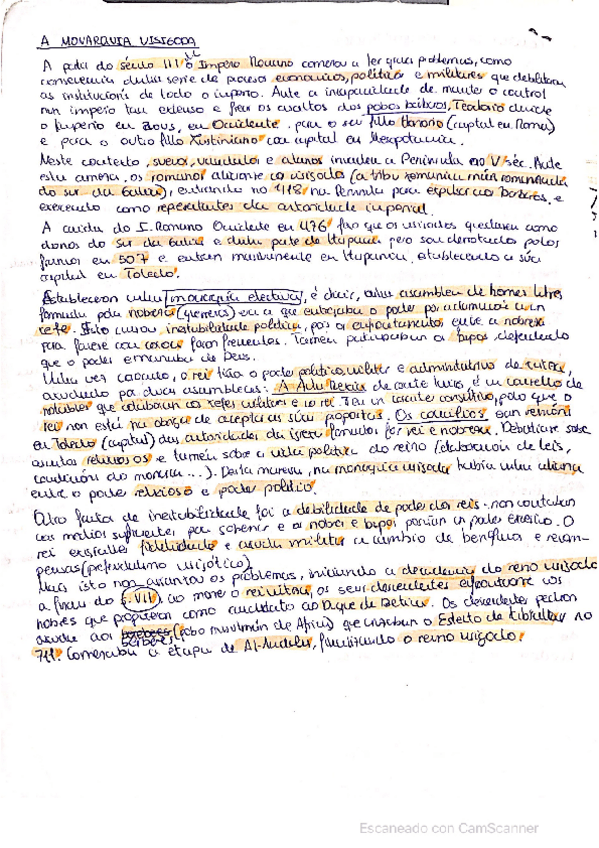 A MONARQUIA VISIGODA
A partir do século III o Imperio Romano comezou a ter graves problemas, como
consecuencia dunha serie de procesos económicos, políticos e militares que debilitaron
as institucións de todo o imperio. Ante a incapacidade de manter o control
nun imperio tan extenso e frear os asaltos dos pobos bárbaros, Teodosio divide
o Imperio en dous, en Occidente para o seu fillo Honorio (capital en Roma)
e para o outro fillo Xustiniano coa capital en Mesopotamia.
Neste contexto, suevos, vándalos e alanos invaden a Península no V séc. Ante
esta amenaza, os romanos alíanse cos visigodos (a tribu xermánica máis romanizada
do sur da Galia), entrando no 418 na Península para expulsar aos bárbaros, e
exercendo como representantes da autoridade imperial.
A caída do I. Romano Occidente en 476 fixo que os visigodos quedasen como
donos do sur da Galia e dunha parte de Hispania, pero son derrotados polos
francos en 507 e entran masivamente en Hispania, establecendo a súa
capital en Toledo.
Estableceron unha monarquía electiva, é dicir, unha asemblea de homes libres
formada pola nobreza (guerreira) era a que entregaba o poder por aclamación a un
xefe. Isto causou inestabilidade política, pois os enfrontamentos entre a nobreza
para facerse coa coroa foron frecuentes. Tamén participaban os bispos, defendendo
que o poder emanaba de Deus.
Unha vez coroado, o rei tiña o poder político, militar e administrativo do reino,
axudado por dúas asembleas: A Aula Rexia de corte laico, é un consello de
notables que colaboran cos xefes militares e co rei. Ten un carácter consultivo, polo que o
rei non está na obriga de aceptar as súas propostas. Os concilios eran reunións
en Toledo (capital) das autoridades da igrexa formados por rei e nobreza. Debatíase sobre
asuntos relixiosos e tamén sobre a vida política do reino (elaboración de leis,
condición do monarca ...). Desta maneira, na monarquía visigoda había unha alianza
entre o poder relixioso e poder político.
Outro factor de inestabilidade foi a debilidade de poder dos reis - non contaban
cos medios suficientes para gobernar e os nobres e bispos tiñan un poder excesivo. O
rei esixíalles fidelidade e axuda militar a cambio de beneficios e recom-
pensas (prefeudalismo visigótico).
Mais isto non aliviou os problemas, iniciando a decadencia do reino visigodo
a finais do S. VII, ao morrer o rei Witiza, os seus descendentes enfrontáronse aos
nobres que propuxeron como candidato ao Duque de Bética. Os descendentes pediron
axuda aos bérberes (pobo musulmán de África) que cruzaban o Estreito de Xibraltar no
711. Comezaba a etapa de Al-Andalus, finalizando o reino visigodo.
Escaneado con CamScanner